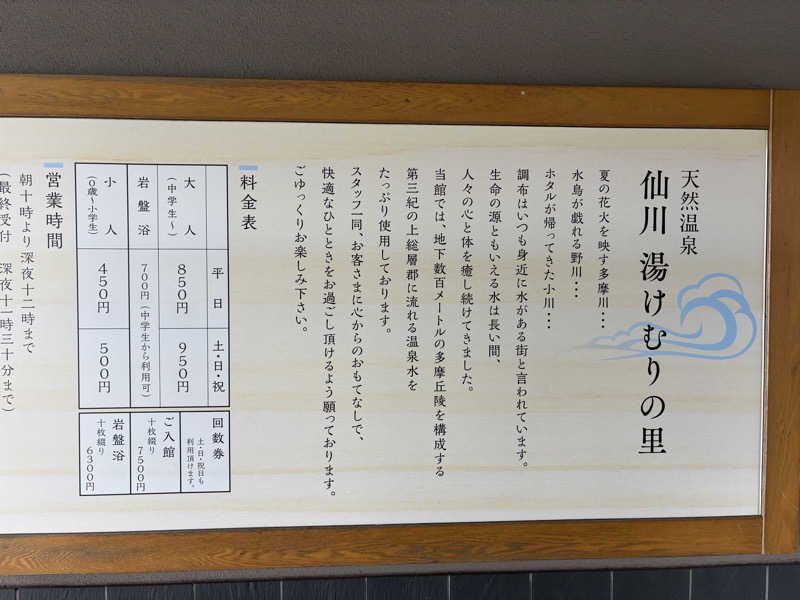 天然温泉
仙川 湯けむりの里
夏の花火を映す多摩川・・・
水鳥が戯れる野川・・・
ホタルが帰ってきた小川・・・
調布はいつも身近に水がある街と言われています。
生命の源ともいえる水は長い間、
人々の心と体を癒し続けてきました。
当館では、地下数百メートルの多摩丘陵を構成する
第三紀の上総層郡に流れる温泉水を
たっぷり使用しております。
スタッフ一同、お客さまに心からのおもてなしで、
快適なひとときをお過ごし頂けるよう願っております。
ごゆっくりお楽しみ下さい。
料金表
平日
土・日・祝
大人
(中学生〜)
850円
950円
岩盤浴
700円(中学生から利用可)
小人
(0歳〜小学生)
450円
500円
回数券
土・日・祝日も
利用頂けます。
ご入館
十枚綴り
7500円
岩盤浴
十枚綴り
6300円
営業時間
朝十時より深夜十二時まで
(最終受付 深夜十一時三十分まで)